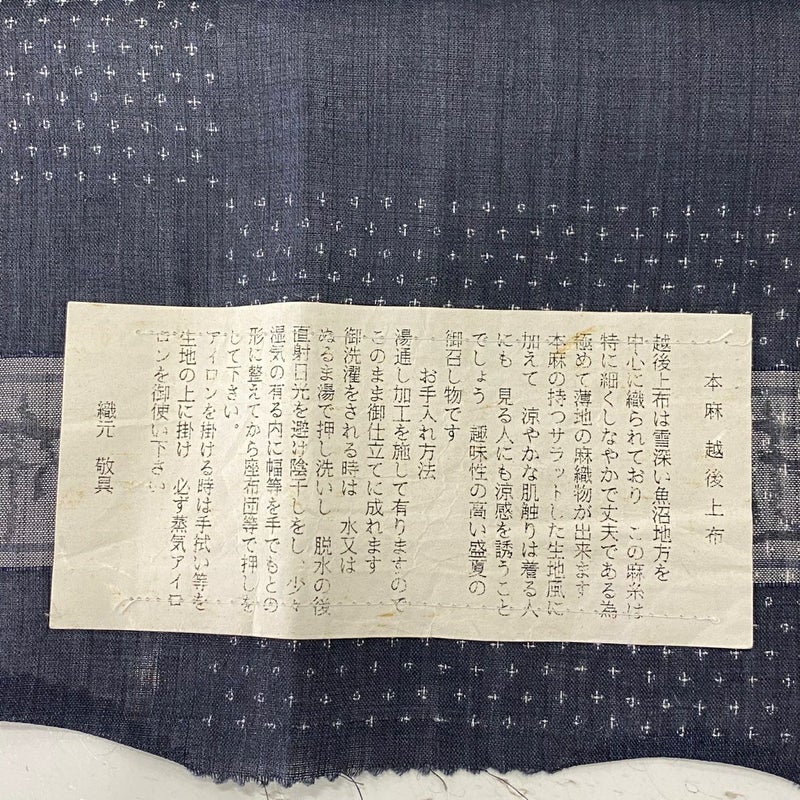 本麻 越後上布
越後上布は雪深い魚沼地方を
中心に織られており この麻糸は
特に細くしなやかで丈夫である為
極めて薄地の麻織物が出来ます
本麻の持つサラットした生地風に
加えて 涼やかな肌触りは着る人
にも 見る人にも涼感を誘うこと
でしょう 趣味性の高い盛夏の
御召し物です
お手入れ方法
湯通し加工を施して有りますので
このまま御仕立てに成れます
御洗濯をされる時は 水又は
ぬるま湯で押し洗いし 脱水の後
直射日光を避け陰干しをし、少々
湿気の有る内に幅等を手でもとの
形に整えてから座布団等で押しを
して下さい。
アイロンを掛ける時は手拭い等を
生地の上に掛け 必ず蒸気アイロ
ンを御使い下さい
織元 敬具